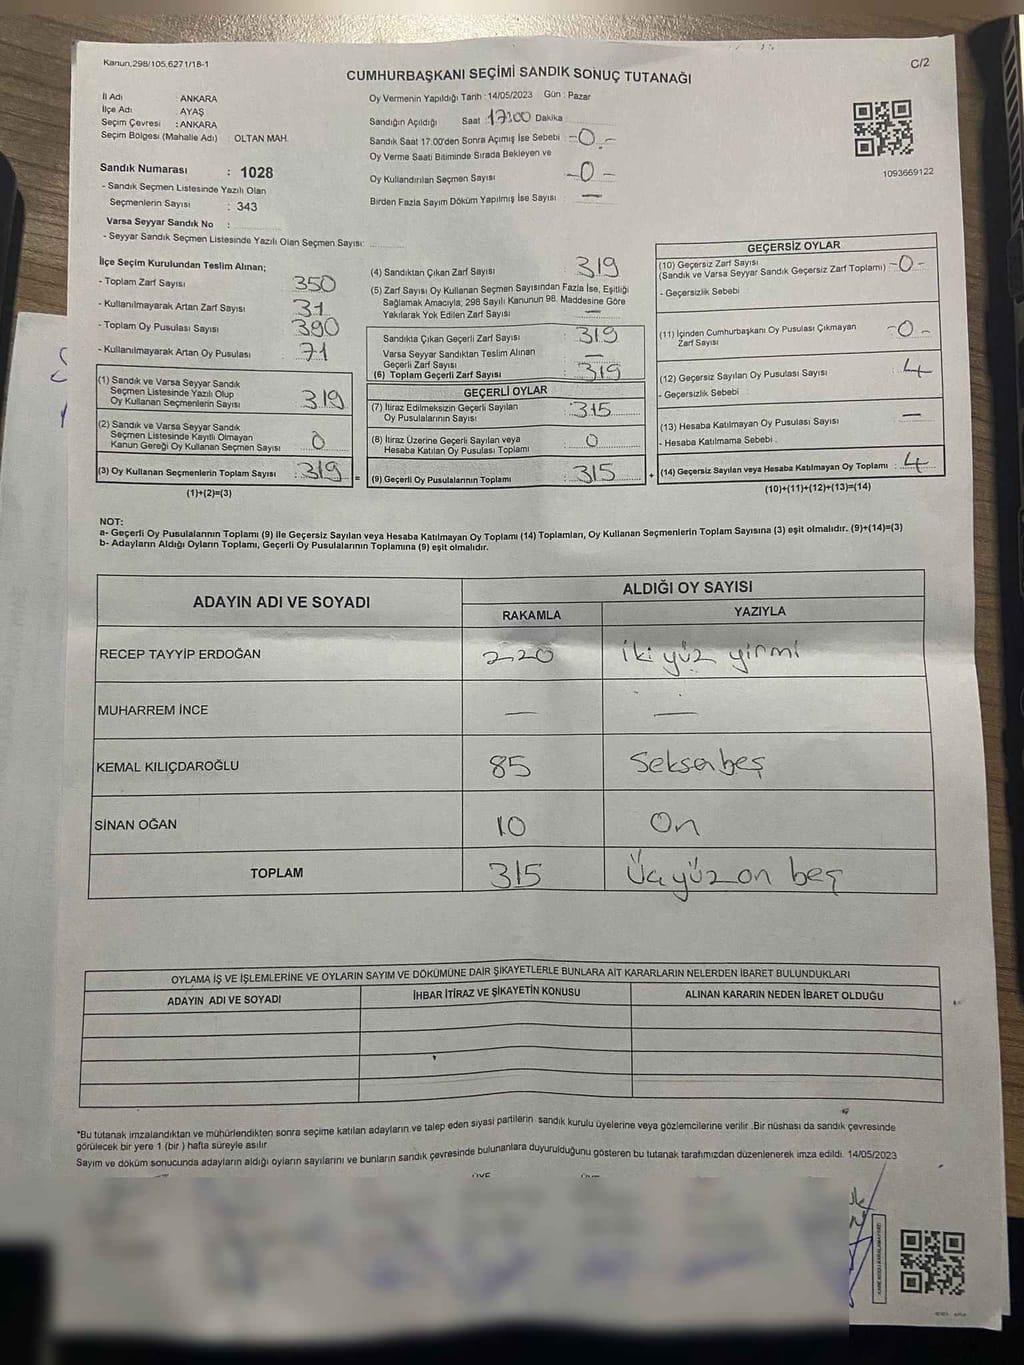 Kanun,298/105,6271/18-1
C/2
CUMHURBAŞKANI SEÇİMİ SANDIK SONUÇ TUTANAĞI
İl Adı : ANKARA
İlçe Adı : AYAŞ
Seçim Çevresi : ANKARA
Seçim Bölgesi (Mahalle Adı) OLTAN MAH.
Oy Vermenin Yapıldığı Tarih : 14/05/2023 Gün : Pazar
Sandığın Açıldığı Saat 17:00 Dakika
Sandık Saat 17:00'den Sonra Açımış İse Sebebi -0.-
Oy Verme Saati Bitiminde Sırada Bekleyen ve
Oy Kullandırılan Seçmen Sayısı -0-
Birden Fazla Sayım Döküm Yapılmış İse Sayısı —
1093669122
Sandık Numarası : 1028
- Sandık Seçmen Listesinde Yazılı Olan
Seçmenlerin Sayısı : 343
Varsa Seyyar Sandık No :
- Seyyar Sandık Seçmen Listesinde Yazılı Olan Seçmen Sayısı:
İlçe Seçim Kurulundan Teslim Alınan;
- Toplam Zarf Sayısı 350
- Kullanılmayarak Artan Zarf Sayısı 31
- Toplam Oy Pusulası Sayısı 390
- Kullanılmayarak Artan Oy Pusulası 71
(1) Sandık ve Varsa Seyyar Sandık
Seçmen Listesinde Yazılı Olup
Oy Kullanan Seçmenlerin Sayısı 319
(2) Sandık ve Varsa Seyyar Sandık
Seçmen Listesinde Kayıtlı Olmayan
Kanun Gereği Oy Kullanan Seçmen Sayısı 0
(3) Oy Kullanan Seçmenlerin Toplam Sayısı : 319 =
(1)+(2)=(3)
(4) Sandıktan Çıkan Zarf Sayısı : 319
(5) Zarf Sayısı Oy Kullanan Seçmen Sayısından Fazla İse, Eşitliği
Sağlamak Amacıyla, 298 Sayılı Kanunun 98. Maddesine Göre
Yakılarak Yok Edilen Zarf Sayısı : —
Sandıkta Çıkan Geçerli Zarf Sayısı : 319
Varsa Seyyar Sandıktan Teslim Alınan
Geçerli Zarf Sayısı : —
(6) Toplam Geçerli Zarf Sayısı : 319
GEÇERLİ OYLAR
(7) İtiraz Edilmeksizin Geçerli Sayılan
Oy Pusulalarının Sayısı : 315
(8) İtiraz Üzerine Geçerli Sayılan veya
Hesaba Katılan Oy Pusulası Toplamı : 0
(9) Geçerli Oy Pusulalarının Toplamı : 315 +
GEÇERSİZ OYLAR
(10) Geçersiz Zarf Sayısı
(Sandık ve Varsa Seyyar Sandık Geçersiz Zarf Toplamı) -0-
- Geçersizlik Sebebi
(11) İçinden Cumhurbaşkanı Oy Pusulası Çıkmayan
Zarf Sayısı -0-
(12) Geçersiz Sayılan Oy Pusulası Sayısı : 4
- Geçersizlik Sebebi
(13) Hesaba Katılmayan Oy Pusulası Sayısı : —
- Hesaba Katılmama Sebebi .
(14) Geçersiz Sayılan veya Hesaba Katılmayan Oy Toplamı : 4
(10)+(11)+(12)+(13)=(14)
NOT:
a- Geçerli Oy Pusulalarının Toplamı (9) ile Geçersiz Sayılan veya Hesaba Katılmayan Oy Toplamı (14) Toplamları, Oy Kullanan Seçmenlerin Toplam Sayısına (3) eşit olmalıdır. (9)+(14)=(3)
b- Adayların Aldığı Oyların Toplamı, Geçerli Oy Pusulalarının Toplamına (9) eşit olmalıdır.
ADAYIN ADI VE SOYADI
ALDIĞI OY SAYISI
RAKAMLA YAZIYLA
RECEP TAYYİP ERDOĞAN 220 iki yüz yirmi
MUHARREM İNCE — —
KEMAL KILIÇDAROĞLU 85 Seksenbeş
SİNAN OĞAN 10 On
TOPLAM 315 Üçyüz on beş
OYLAMA İŞ VE İŞLEMLERİNE VE OYLARIN SAYIM VE DÖKÜMÜNE DAİR ŞİKAYETLERLE BUNLARA AİT KARARLARIN NELERDEN İBARET BULUNDUKLARI
ADAYIN ADI VE SOYADI İHBAR İTİRAZ VE ŞİKAYETİN KONUSU ALINAN KARARIN NEDEN İBARET OLDUĞU
*Bu tutanak imzalandıktan ve mühürlendikten sonra seçime katılan adayların ve talep eden siyasi partilerin sandık kurulu üyelerine veya gözlemcilerine verilir .Bir nüshası da sandık çevresinde
görülecek bir yere 1 (bir ) hafta süreyle asılır
Sayım ve döküm sonucunda adayların aldığı oyların sayılarını ve bunların sandık çevresinde bulunanlara duyurulduğunu gösteren bu tutanak tarafımızdan düzenlenerek imza edildi. 14/05/2023